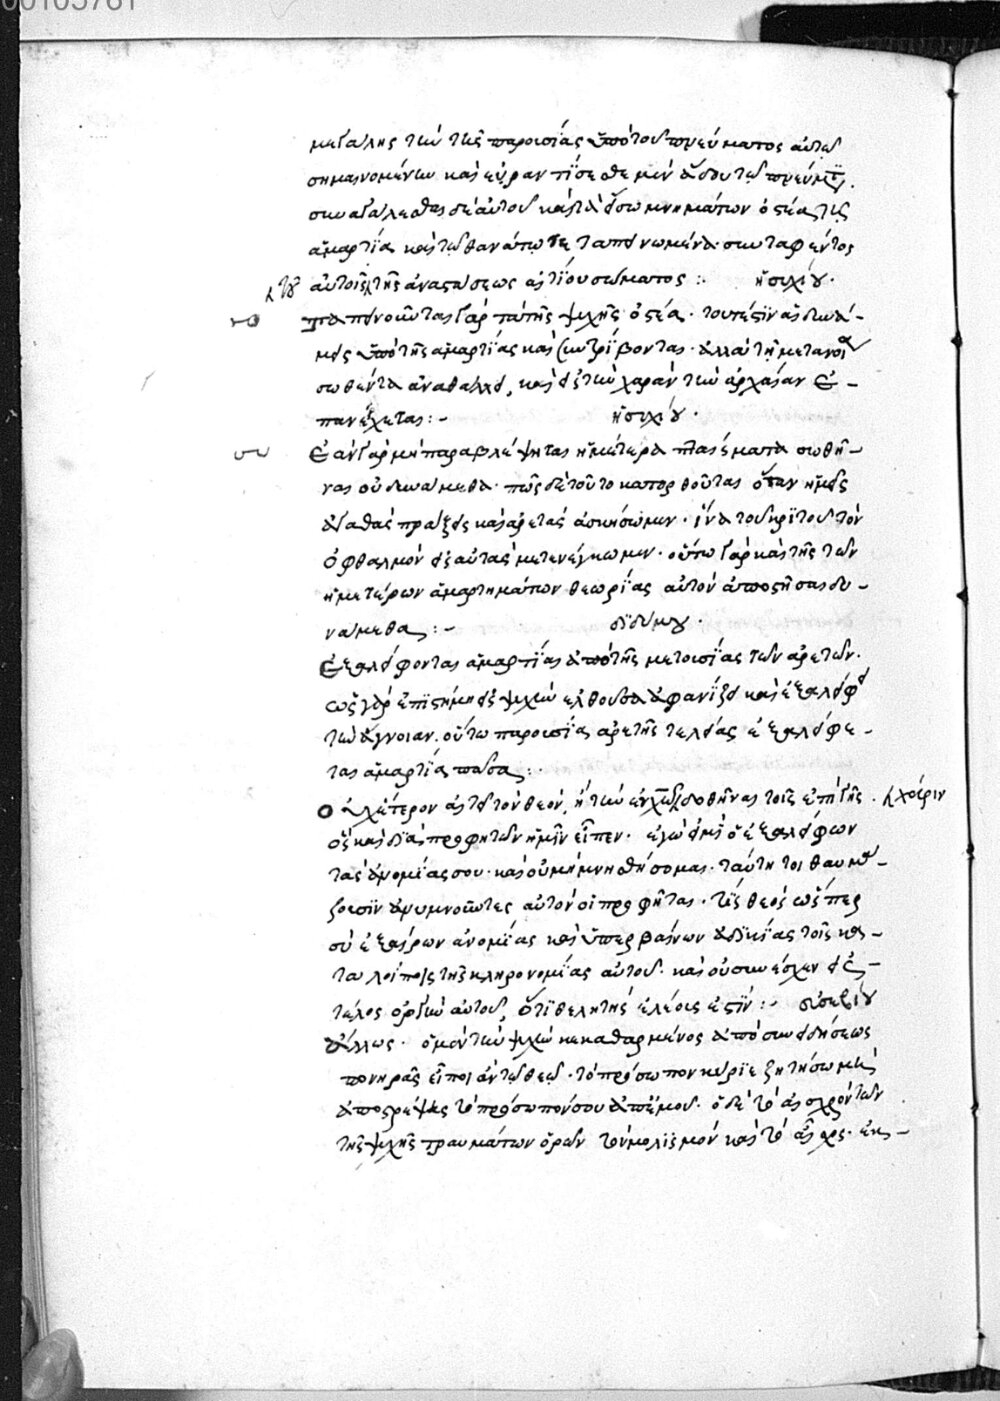 00105761
μεγάλης τῶν τῆς παροισίας ὑπὸ τοῦ πνεύματος αὐτῷ
σημαινομένων καὶ εὐφραντῖσεσθε μὲν ἅδου τῷ πνεύματι.
συναγάλεσθαι δὲ αὐτοῦ καὶ τὰ ἔσω μνημάτων ὀστέα τῆς
ἁμαρτία καὶ τῷ θανάτῳ τεταπεινωμένα. συνταφέντος
κ τοῦ αὐτοῖς τῆς ἀναστάσεως ἁγίου σώματος :. ἡσυχίου.
ταπεινοῦνται γὰρ τὰ τῆς ψυχῆς ὀστέα. τουτέστιν αἱ δυνά-
μεις ὑπὸ τῆς ἁμαρτίας καὶ συντρίβονται. ἀλλὰ τῇ μετανοίᾳ
σωθέντα ἀναθάλλει, καὶ εἰς τὴν χαρὰν τὴν ἀρχαίαν ἐ-
πανέρχεται :- ἡσυχίου.
Ἐὰν γὰρ μὴ παραβλέψηται ἡμέτερα πταίσματα σωθῆ-
ναι οὐ δυνάμεθα. πῶς δὲ τοῦτο κατορθοῦται ὅταν ἡμεῖς
ἀγαθὰς πράξεις καὶ ἀρετὰς ἀσκήσωμεν. ἵνα τοῦ κριτοῦ τὸν
ὀφθαλμὸν εἰς αὐτὰς μετενέγκωμεν. οὕτω γὰρ καὶ τῆς τῶν
ἡμετέρων ἁμαρτημάτων θεωρίας αὐτὸν ἀποστῆσαι δυ-
νάμεθα :- διδύμου.
Ἐξαλείφονται ἁμαρτίαι ἀπὸ τῆς μετοισίας τῶν ἀρετῶν.
ὡς γὰρ ἐπιστήμη εἰς ψυχὴν ἐλθοῦσα ἀφανίζει καὶ ἐξαλείφει
τὴν ἄγνοιαν. οὕτω παροισία ἀρετῆς τελείας ἐξαλείφε-
ται ἁμαρτία πᾶσα :.
Ὁ ἀλείτερον εἰς τὸν θεόν, ἢ τὴν ἐν χῶ δοθῆναι τοῖς ἐπὶ γῆς. κ χάριν
ὃς καὶ διὰ προφητῶν ἡμῖν εἶπεν. ἐγώ εἰμι ὁ ἐξαλείφων
τὰς ἀνομίας σου. καὶ οὐ μὴ μνησθήσομαι. ταύτη τοι θαυμά-
ζουσιν ἀνυμνοῦντες αὐτὸν οἱ προφῆται. τίς θεὸς ὥσπερ
σὺ ἐξαίρων ἀνομίας καὶ ὑπερβαίνων ἀδικίας τοῖς κα-
ταλοίποις τῆς κληρονομίας αὐτοῦ. καὶ οὐ συνέσχεν εἰς
τέλος ὀργὴν αὐτοῦ, ὅτι θελητὴς ἐλέους ἐστίν :- εὐσεβίου
Ἄλλως. ὁ μὲν τὴν ψυχὴν κεκαθαρμένος ἀπὸ συνειδήσεως
πονηρᾶς εἴποι ἂν τῷ θεῷ. τὸ πρόσωπον κύριε ζητήσω μὴ
ἀποστρέψῃς τὸ πρόσωπόν σου ἀπ' ἐμοῦ. ὁ δὲ τὸ αἰσχρὸν τῶν
τῆς ψυχῆς τραυμάτων ὁρῶν τὸν μολισμὸν καὶ τὸ αἶσχος. ἐκ-